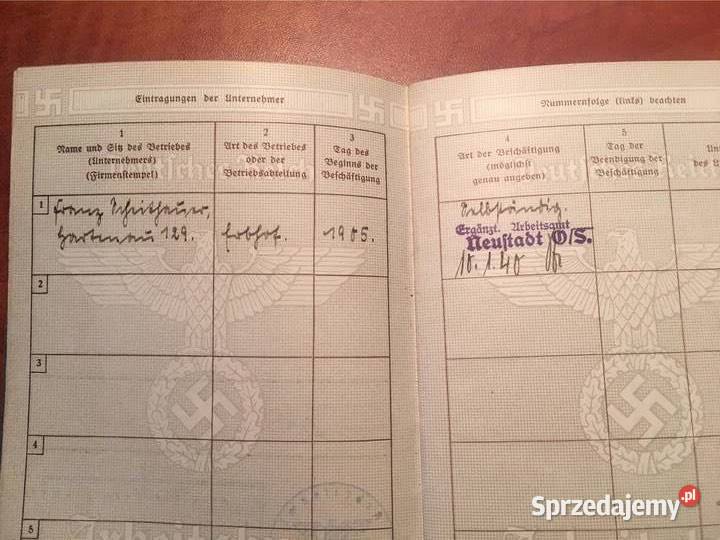 Eintragungen der Unternehmer
1
Name und Sitz des Betriebes
(Unternehmers)
(Firmenstempel)
2
Art des Betriebes
oder der
Betriebsabteilung
3
Tag des
Beginns der
Beschäftigung
1
Franz Scheithauer,
Hartenau 129.
Erbhof.
1905.
2
3
4
5
Nummernfolge (links) beachten
4
Art der Beschäftigung
(möglichst
genau angeben)
5
Tag der
Beendigung der
Beschäftigung
Unt
des U
Selbständig.
Ergänzt. Arbeitsamt
Neustadt O/S.
10.1.40
Sprzedajemy.pl